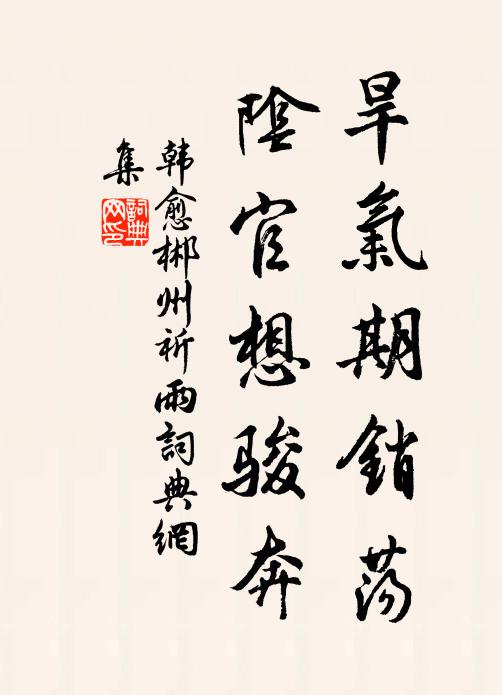 旱氣期銷荡
陰官想骏奔
韩愈郴州祈雨詞典網
集
詞典
网印